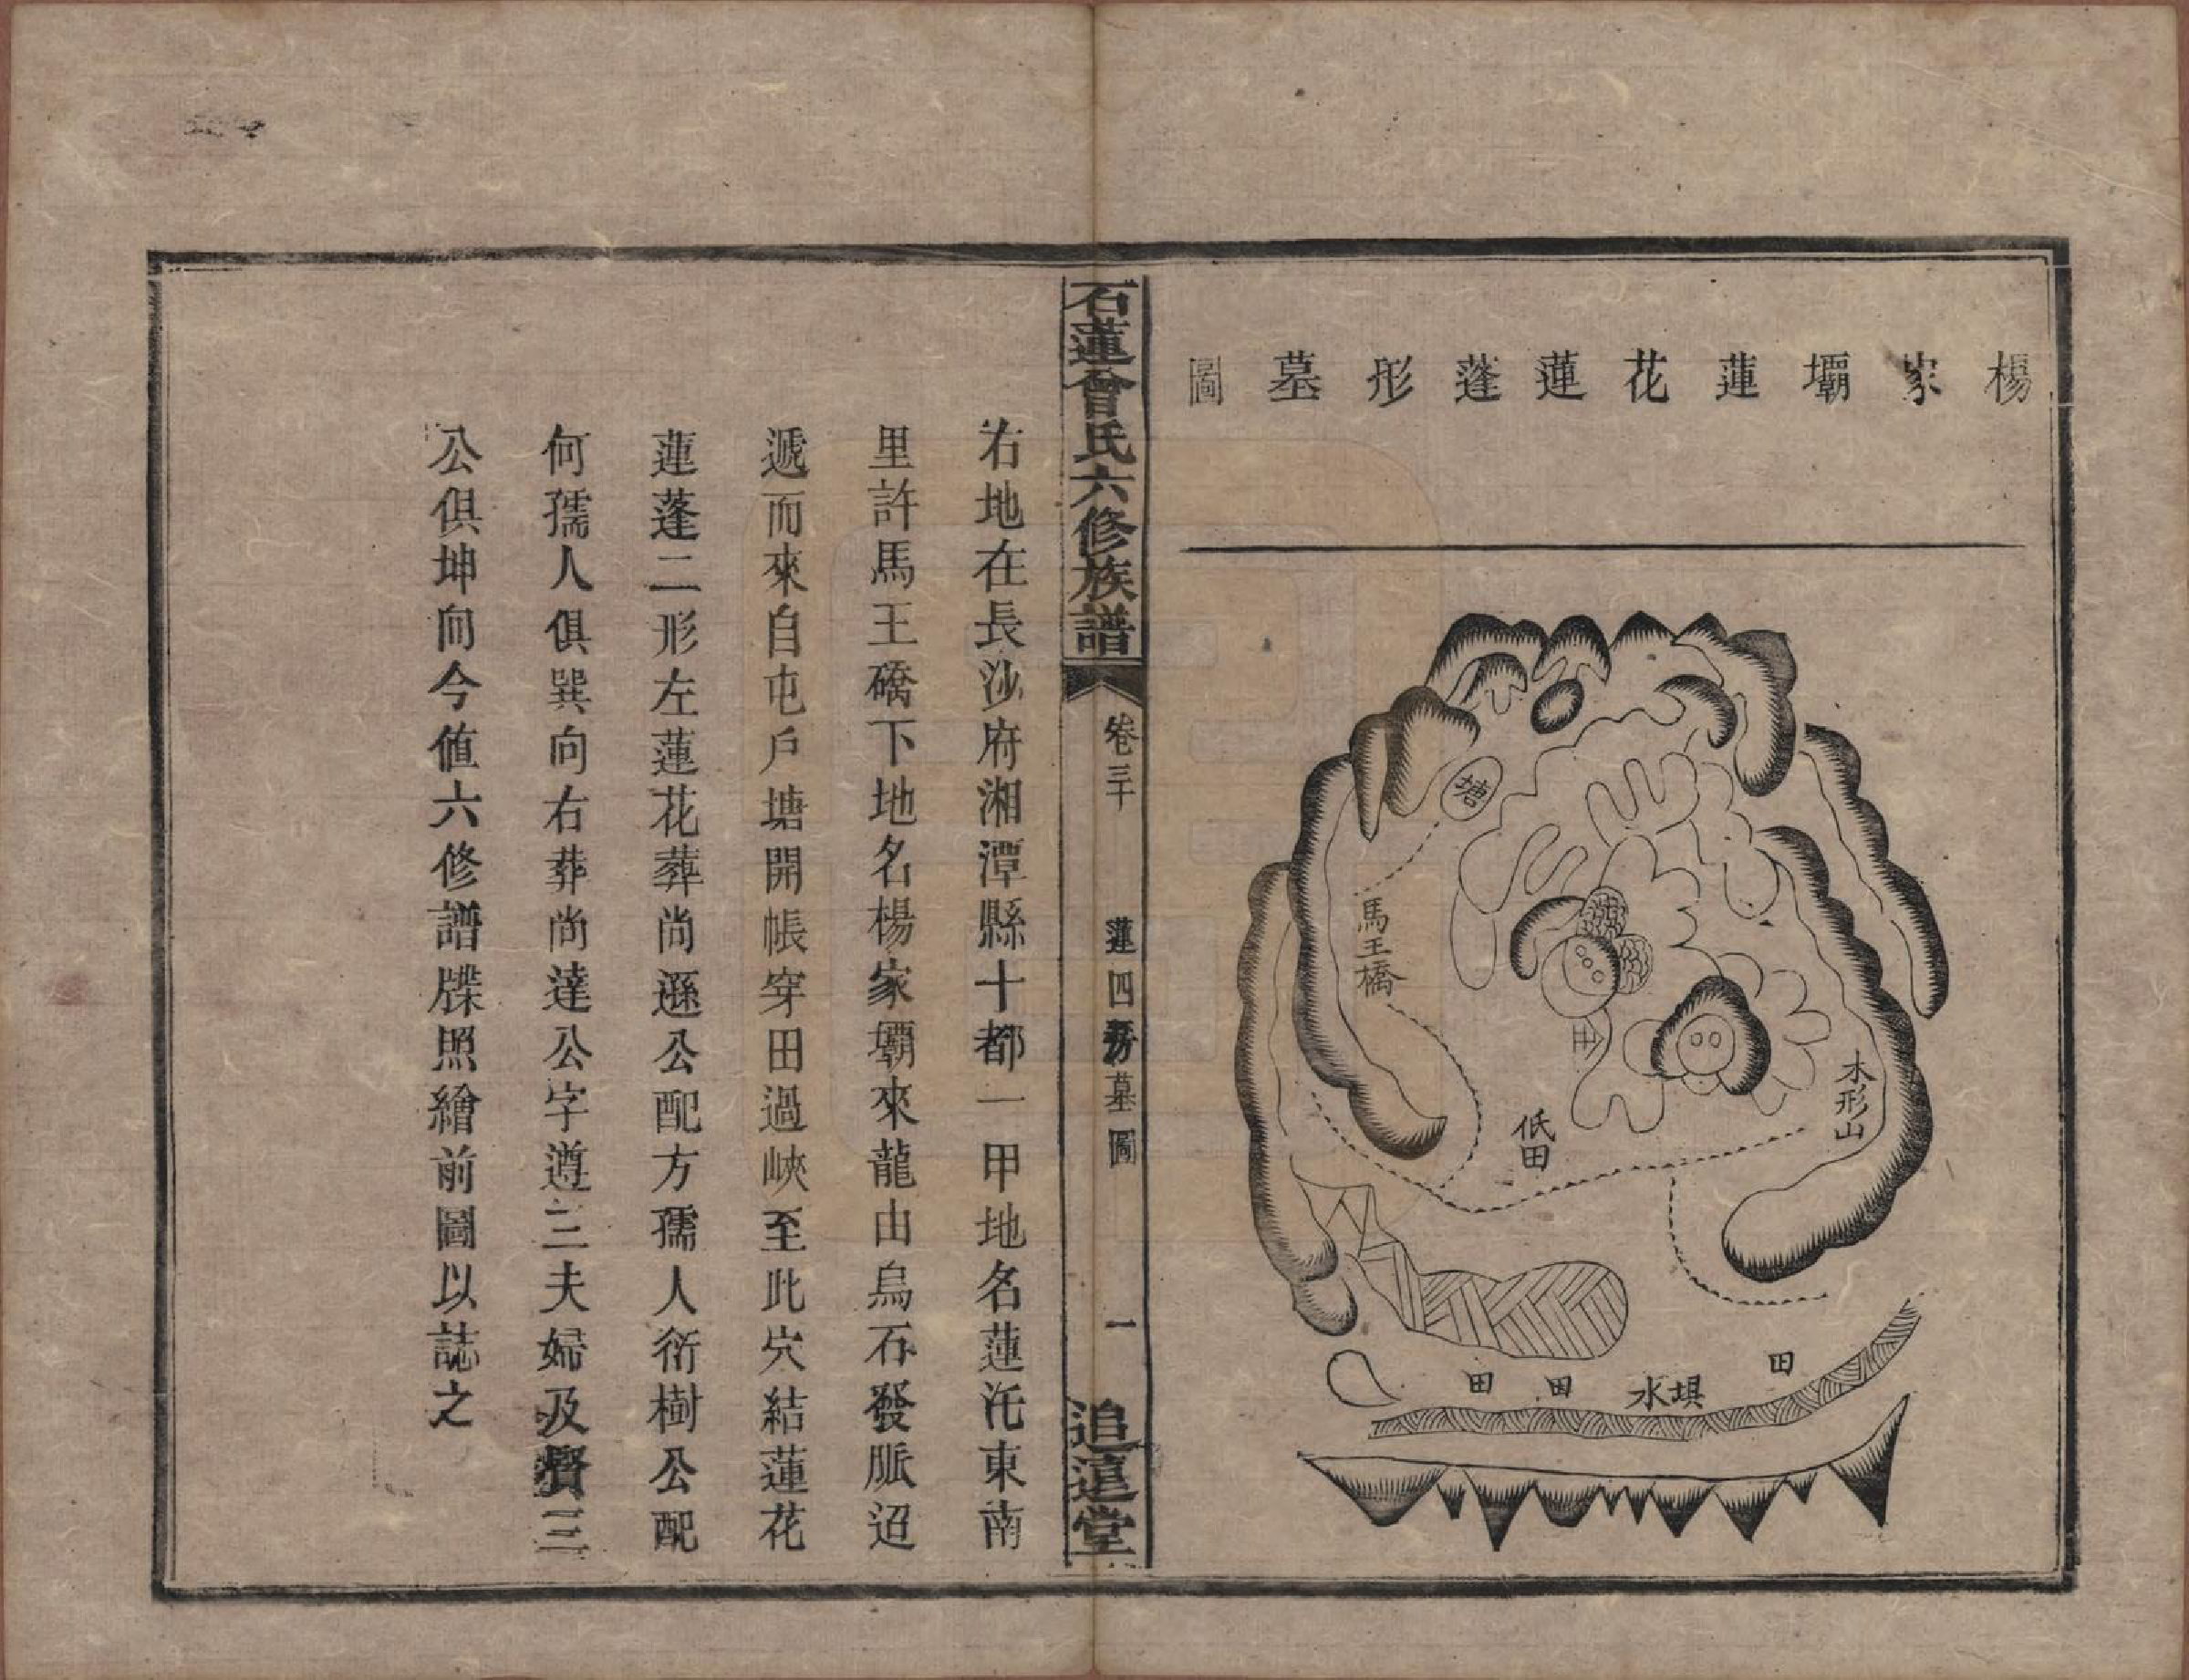 楊家壩蓮花蓮蓬形墓圖
塘
馬王橋
木形山
低田
田
水埧
田
田
石蓮曾氏六修族譜
卷三十
蓮四房墓圖
一
追遠堂
右地在長沙府湘潭縣十都一甲地名蓮汑東南
里許馬王礄下地名楊家壩來龍由烏石發脈迢
遞而來自屯戶塘開帳穿田過峽至此穴結蓮花
蓮蓬二形左蓮花葬尚遜公配方孺人衍樹公配
何孺人俱巽向右葬尚達公字遵三夫婦及賚三
公俱坤向今值六修譜牒照繪前圖以誌之